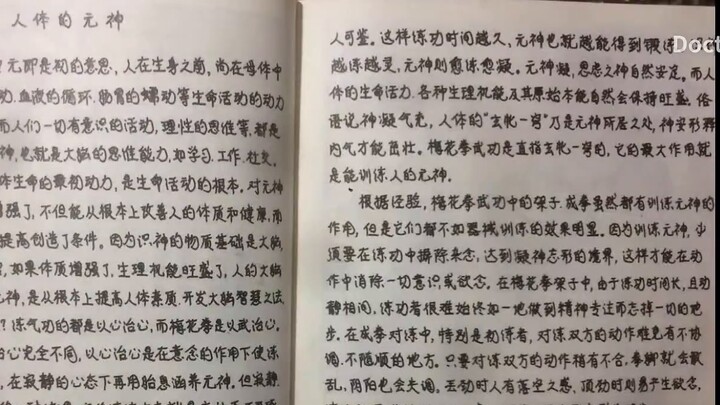 人体的元神
元即是初的意思，人在生身之前，尚在母体中
动.血液的循环.肠胃的蠕动等生命活动的动力
而人们一切有意识的活动，理性的思维等.都是
神，也就是大脑的思维能力，如学习.工作.社交。
生命的最初动力，是生命活动的根本。对元神
增强了，不但能从根本上改善人的体质和健康，而
提高创造了条件。因为识神的物质基础是大脑，
，如果体质增强了，生理机能旺盛了，人的大脑
元神，是从根本上提高人体素质.开发大脑智慧之法
？练气功的都是以心治心，而梅花拳是以武治心。
心完全不同，以心治心是在意念的作用下使练
，在寂静的心态下再用胎息涵养元神。但寂静
人可鉴。这样练功时间越久，元神也就越能得到锻
越练越灵，元神则愈练愈凝。元神凝，思虑之神自然安定。而人
体的生命活力.各种生理机能及其原始本能自然会保持旺盛。俗
语说神凝气充，人体的“玄牝一窍”乃是元神所居之处，神安形藏
内气才能茁壮。梅花拳武功是直指玄牝一窍的，它的最大作用就
是能训练人的元神。
根据经验，梅花拳武功中的架子.成拳虽然都有训练元神的
作用，但是它们都不如器械训练的效果明显。因为训练元神，必
须要在练功中摒除杂念，达到凝神忘形的境界，这样才能在动
作中消除一切意识或欲念。在梅花拳架子中，由于练功时间长，且动
静相间，练功者很难始终如一地做到精神专注而忘掉一切的地
步。在成拳对练中，特别是初练者，对练双方的动作难免有不协
调.不随顺的地方。只要对练双方的动作稍有不合，拳脚就会散
乱，阴阳也会失调。丢劲时人有落空之感，顶劲时则易产生欲念，
Doct